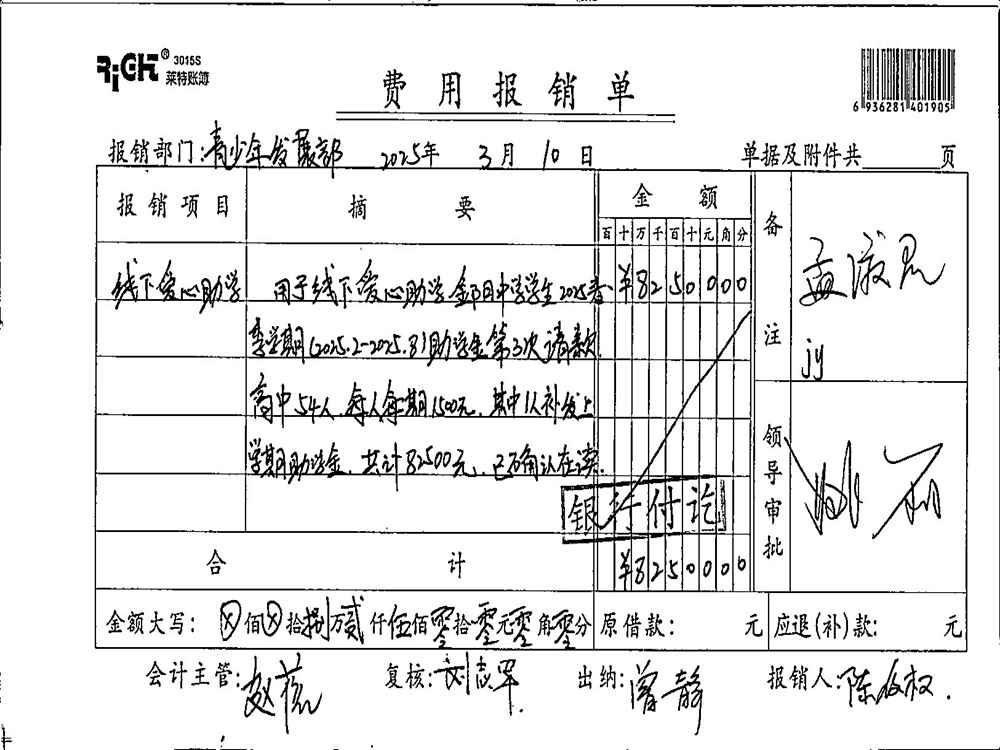 RiGHT® 3015S
莱特账簿
费用报销单
6 936281 401905
报销部门:青少年发展部 2025年 3月 10日 单据及附件共 页
报销项目 摘要 金额 备注
百十万千百十元角分
线下爱心助学 用于线下爱心助学金项目中学学生2025春 ¥8250000
季学期(2025.2-2025.8)助学金第3次请款
高中54人,每人每期1500元,其中1人补发上
学期助学金,共计82500元,已确认在读.
银行付讫
合计 ¥8250000
孟淑
jy
领导审批
姚
金额大写:ⓧ佰ⓧ拾捌万贰仟伍佰零拾零元零角零分 原借款: 元 应退(补)款: 元
会计主管:赵 复核:刘志军. 出纳:曾静 报销人:陈权.